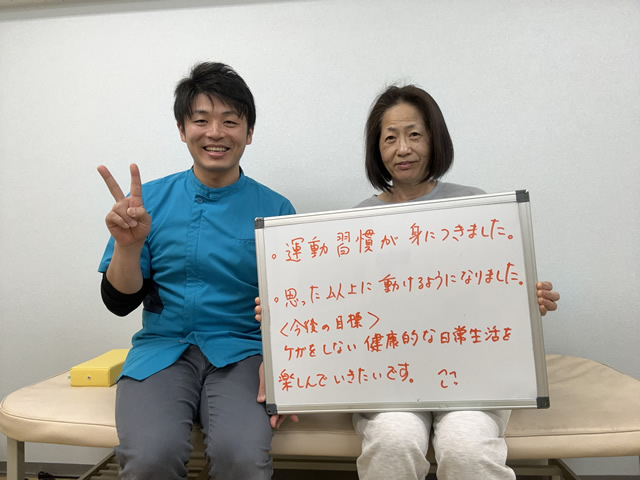 ・運動習慣が身につきました。
・思った以上に動けるようになりました。
<今後の目標>
ケガをしない健康的な日常生活を
楽しんでいきたいです。